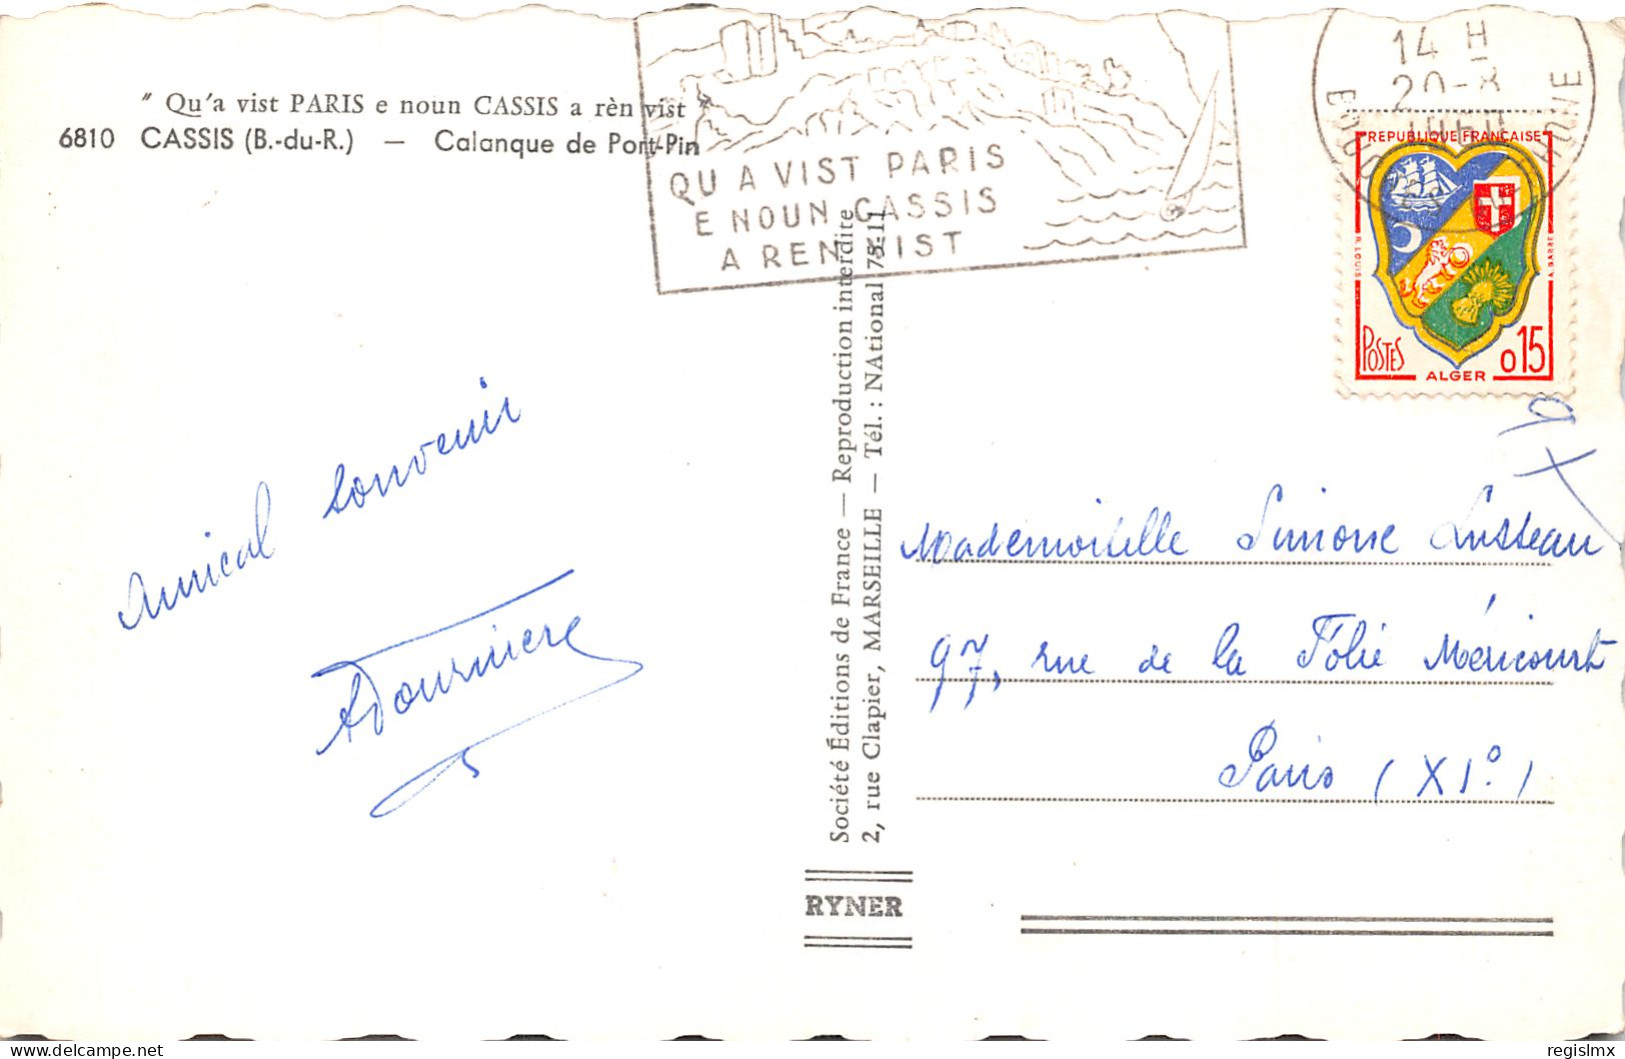 " Qu'a vist PARIS e noun CASSIS a rèn vist "
6810 CASSIS (B.-du-R.) — Calanque de Port-Pin
QU A VIST PARIS
E NOUN CASSIS
A REN VIST
14 H
20-8
BOUCHES DU RHONE
REPUBLIQUE FRANÇAISE
POSTES
0,15
ALGER
Amical souvenir
Société Éditions de France — Reproduction interdite
2, rue Clapier, MARSEILLE — Tél. : NAtional 75-11
RYNER
Mademoiselle Simone Lusseau
97, rue de la Folie Méricourt
Paris (XI°)
regislmx